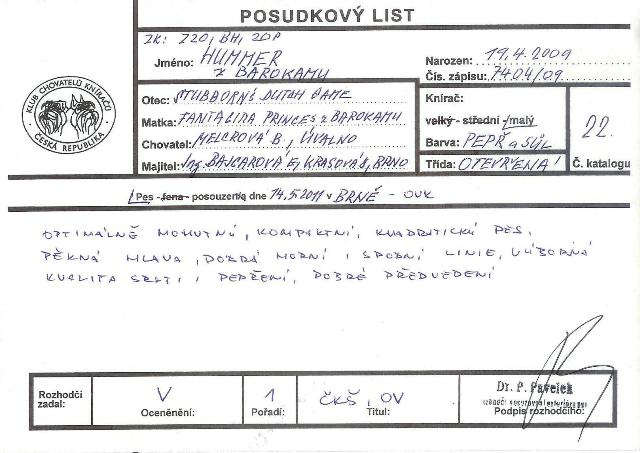 POSUDKOVÝ LIST
ZK: ZZO, BH, ZOP
Jméno: HUMMER
Z BAROKAMU
Narozen: 19.4.2009
Čís. zápisu: 7404/09
KLUB CHOVATELŮ KNÍRAČŮ
ČESKÁ REPUBLIKA
Otec: STUBBORNS DUTCH DAME
Matka: FANTAGIRA PRINCES Z BAROKAMU
Chovatel: MELCROVÁ B., ÚVALNO
Majitel: Ing. BAJCAROVÁ E, KRASOVÁ, BRNO
Knírač:
velký - střední /malý
Barva: PEPŘ a SŮL
Třída: OTEVŘENÁ
22.
Č. katalogu
Pes - fena - posouzen/a dne 14.5.2011 v BRNĚ - OVK
OPTIMÁLNĚ MOHUTNÝ, KOMPAKTNÍ, KVADRATICKÝ PES,
PĚKNÁ HLAVA, DOBRÁ HORNÍ I SPODNÍ LINIE, VÝBORNÁ
KVALITA SRSTI I PEPŘENÍ, DOBRÉ PŘEDVEDENÍ
Rozhodčí
zadal:
V
Ocenění:
1
Pořadí:
ČKŠ, OV
Titul:
Dr. P. Pavelek
Podpis rozhodčího: